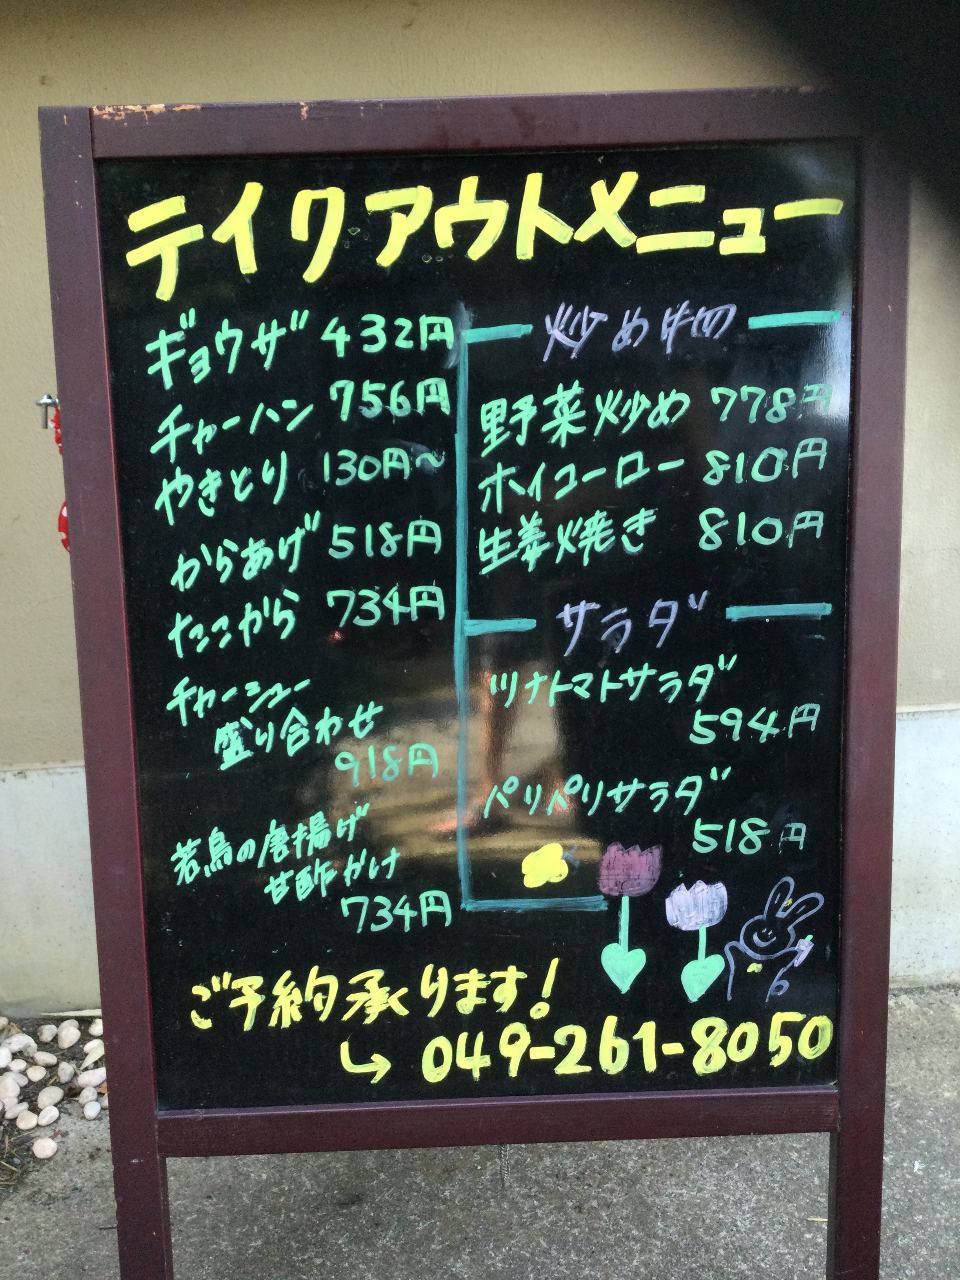 テイクアウトメニュー
ギョウザ 432円
チャーハン 756円
やきとり 130円~
からあげ 518円
たこから 734円
チャーシュー
盛り合わせ
918円
若鳥の唐揚げ
甘酢かけ
734円
炒め物
野菜炒め 778円
ホイコーロー 810円
生姜焼き 810円
サラダ
ツナトマトサラダ
594円
パリパリサラダ
518円
ご予約承ります!
↳ 049-261-8050